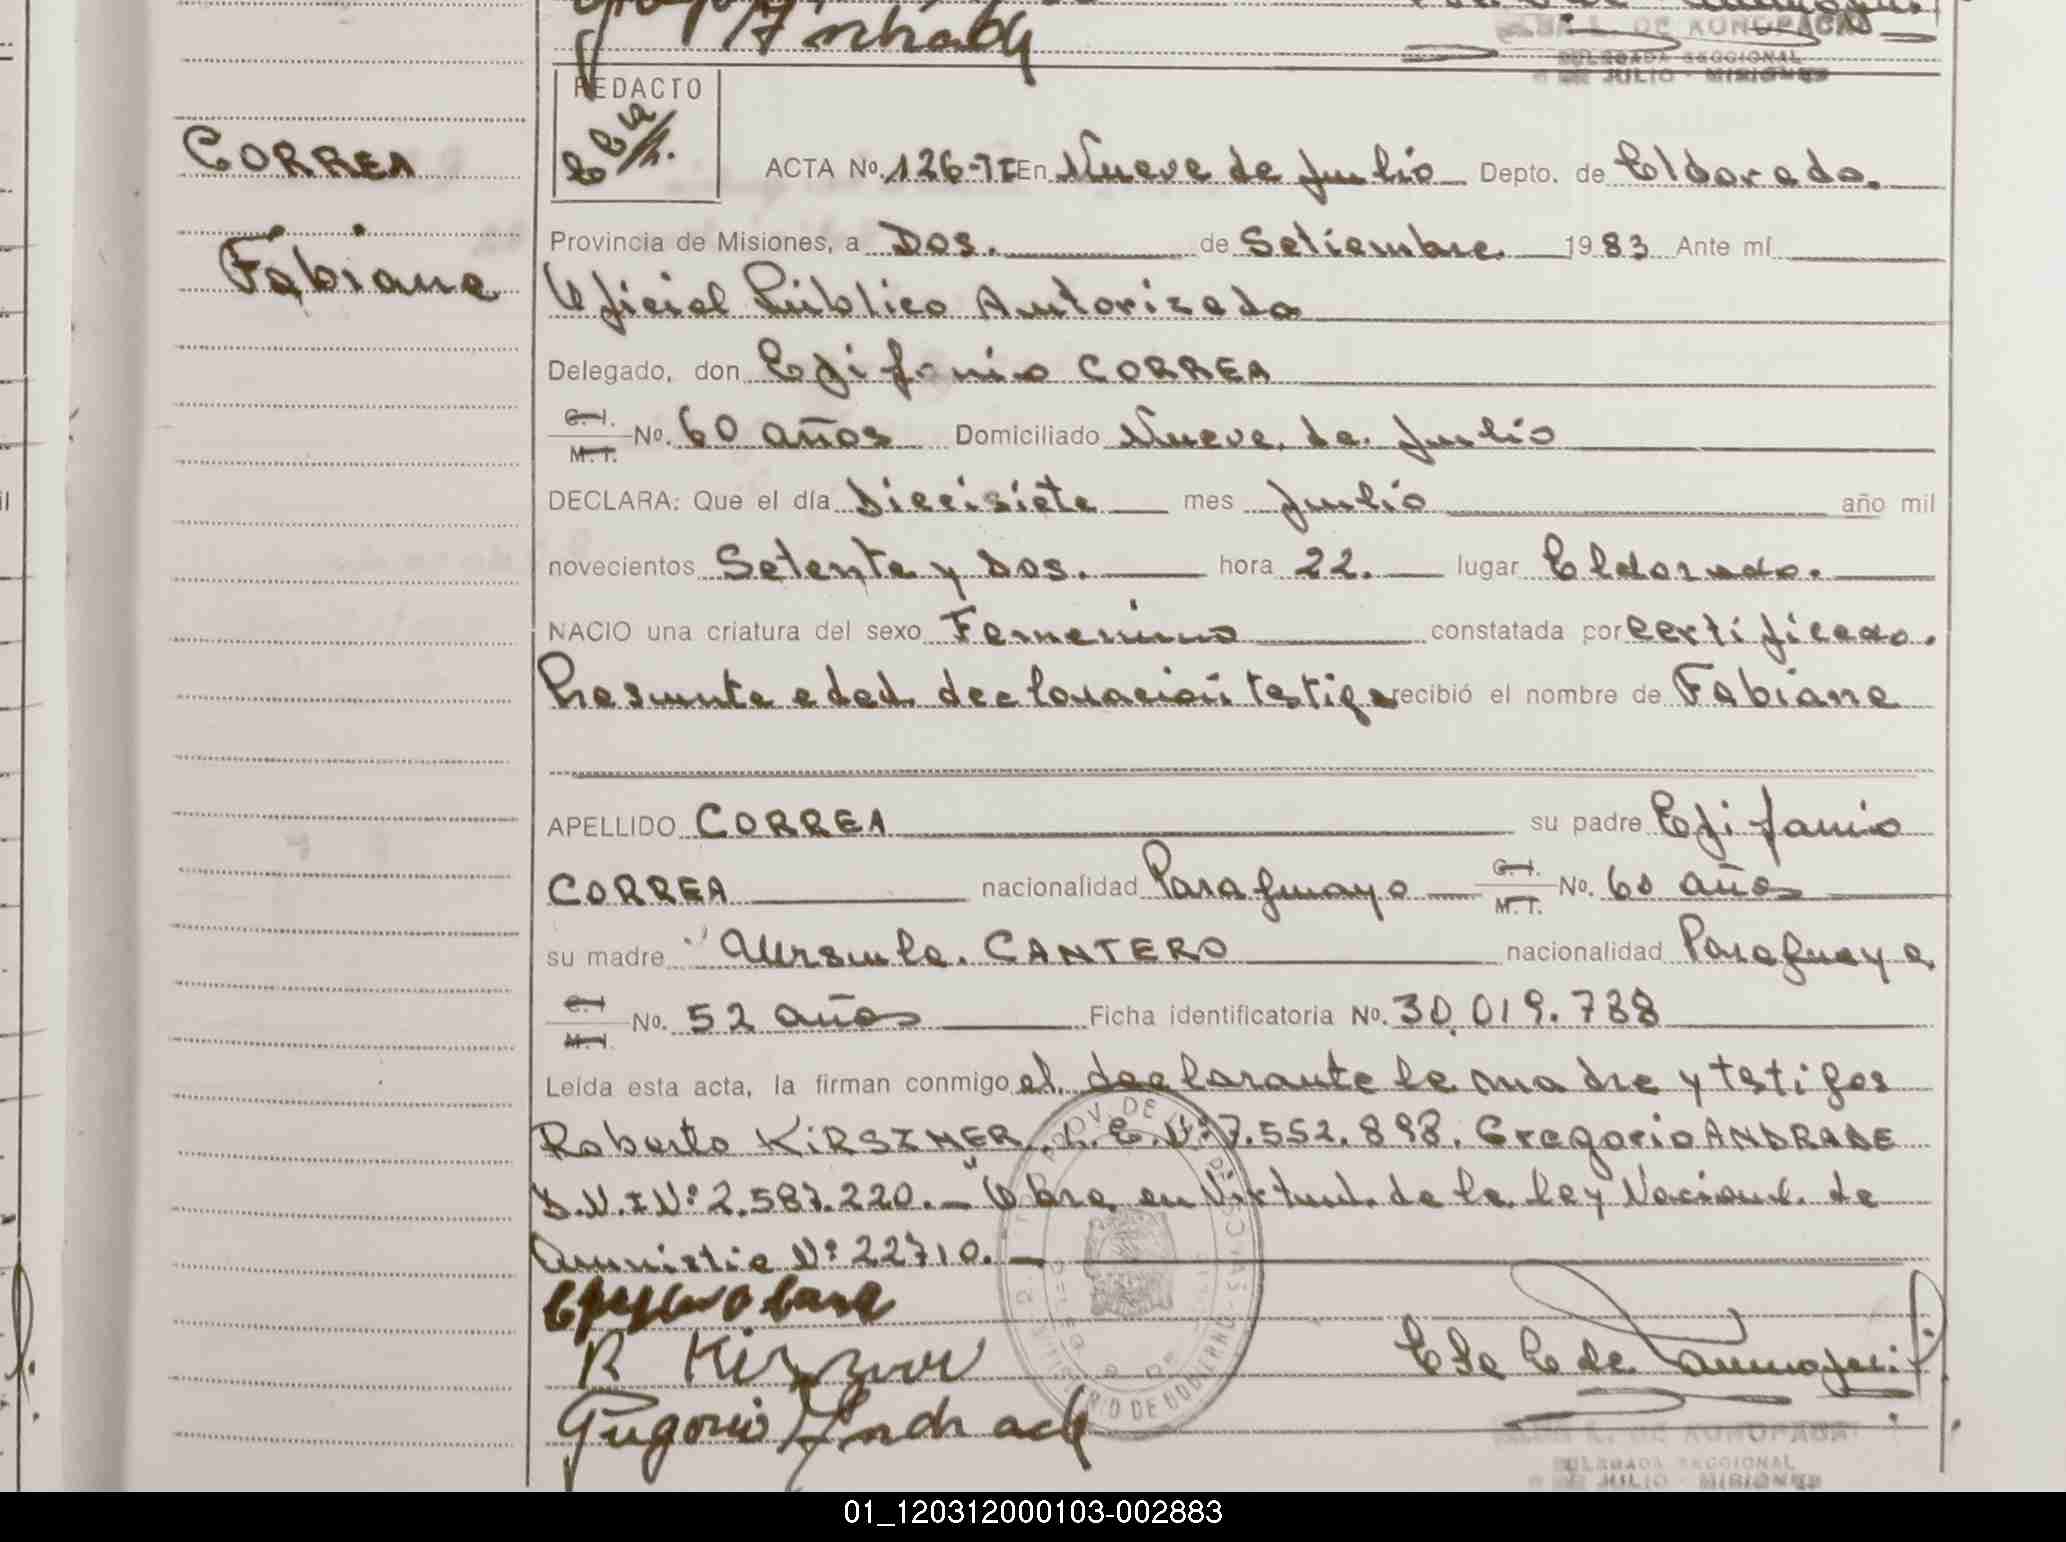 Andrade
DELEGADA SECCIONAL
9 DE JULIO - MISIONES
REDACTO
CORREA
Fabiana
ACTA No. 126-TI En Nueve de Julio Depto. de Eldorado.
Provincia de Misiones, a Dos. de Setiembre 1983 Ante mí
Oficial Público Autorizada
Delegado, don Epifanio CORREA
C. I. M. I. No. 60 años Domiciliado Nueve de Julio
DECLARA: Que el día Diecisiete mes Julio año mil
novecientos Setenta y Dos. hora 22. lugar Eldorado.
NACIO una criatura del sexo Femenino constatada por certificado.
Presunta edad declaración testigo recibió el nombre de Fabiana
APELLIDO CORREA su padre Epifanio
CORREA nacionalidad Paraguayo C. I. M. I. No. 60 años
su madre Ursula. CANTERO nacionalidad Paraguaya
C. I. M. I. No. 52 años Ficha identificatoria No. 30.019.738
Leída esta acta, la firman conmigo el declarante la madre y testigos
Roberto KIRSZNER L.E.Nº 7.552.898. Gregorio ANDRADE
D.N.I Nº 2.587.220.- Obra en Virtud de la Ley Nacional de
Amnistia Nº 22710.-
R Kirzner
Gregorio Andrade
DELEGADA SECCIONAL
9 DE JULIO - MISIONES
01_120312000103-002883